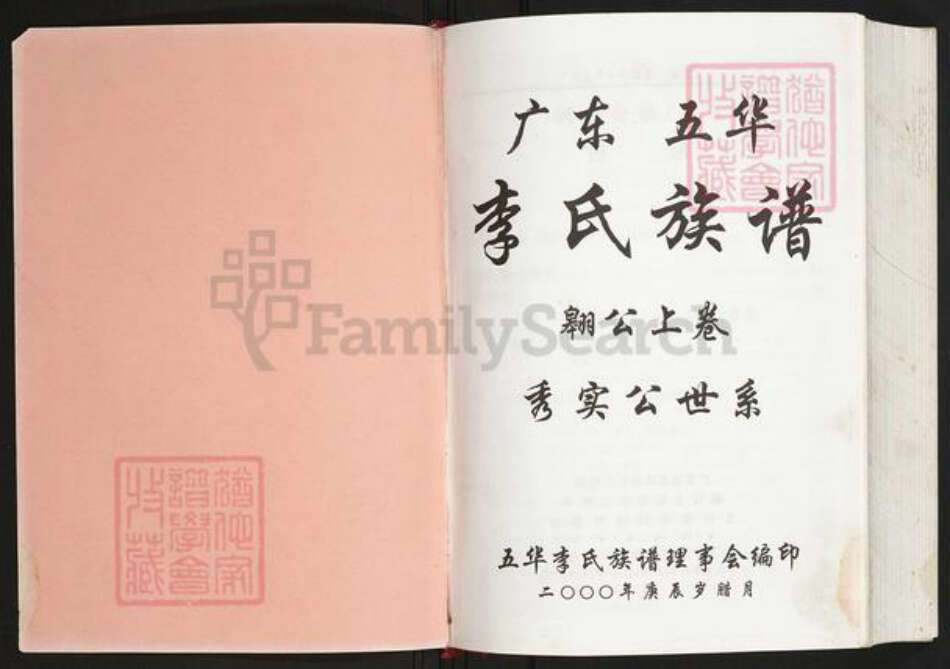 广东 五华
李氏族谱
翱公上卷
秀实公世系
五华李氏族谱理事会编印
二〇〇〇年庚辰岁腊月
FamilySearch
猶他家
譜學會
收藏
猶他家
譜學會
收藏